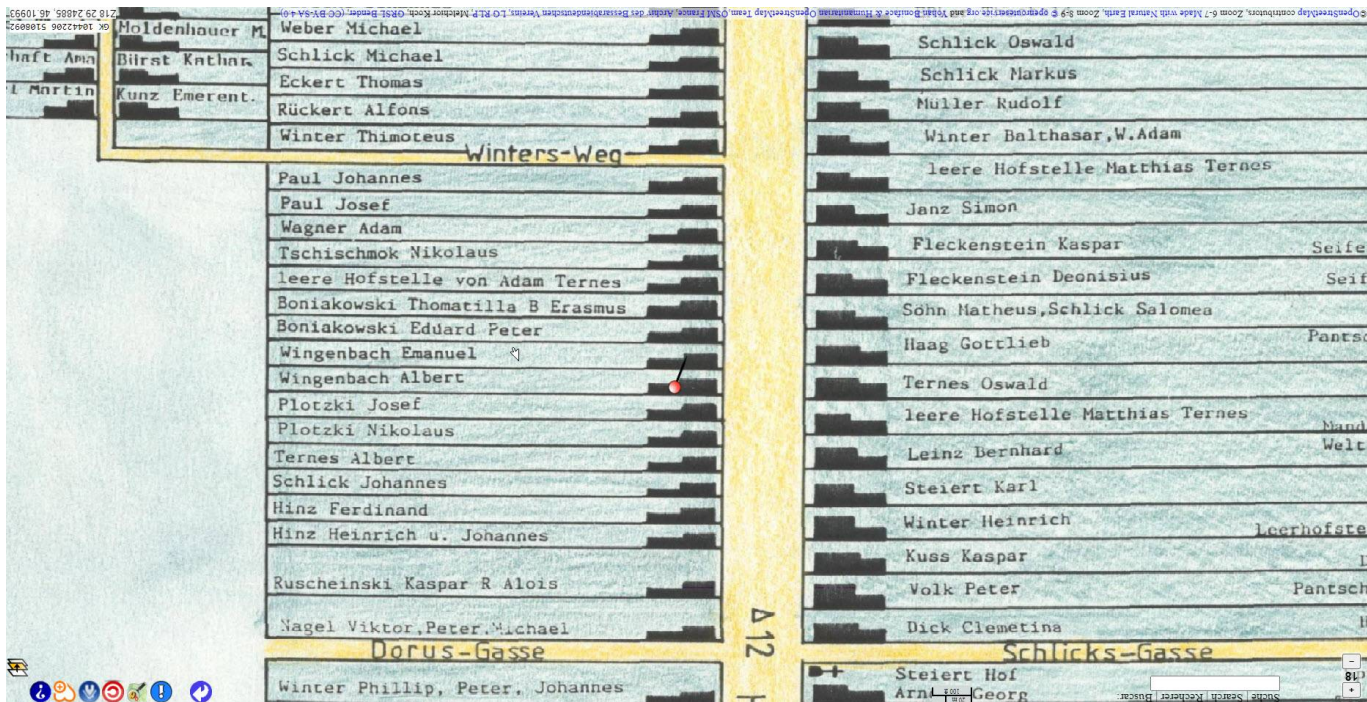 OpenStreetMap contributors, Zoom 6-7 Made with Natural Earth, Zoom 8-9 © openrouteservice.org and Yohan Boniface & Humanitarian OpenStreetMap Team, OSM France, Archiv des Bessarabiendeutschen Vereins, LO RLP Melchior Koch, GRSI Bender, (CC-BY-SA 4.0)
Z18 29.24885, 46.10993
Moldenhauer M
haft Ama
Bürst Kathar.
l Martin
Kunz Emerent.
Weber Michael
Schlick Michael
Eckert Thomas
Rückert Alfons
Winter Thimoteus
Winters-Weg
Paul Johannes
Paul Josef
Wagner Adam
Tschischmok Nikolaus
leere Hofstelle von Adam Ternes
Boniakowski Thomatilla B Erasmus
Boniakowski Eduard Peter
Wingenbach Emanuel
Wingenbach Albert
Plotzki Josef
Plotzki Nikolaus
Ternes Albert
Schlick Johannes
Hinz Ferdinand
Hinz Heinrich u. Johannes
Ruscheinski Kaspar R Alois
Nagel Viktor,Peter,Michael
Dorus-Gasse
Winter Phillip, Peter, Johannes
A 12
Schlick Oswald
Schlick Markus
Müller Rudolf
Winter Balthasar,W.Adam
leere Hofstelle Matthias Ternes
Janz Simon
Fleckenstein Kaspar
Seife
Fleckenstein Deonisius
Seif
Söhn Matheus,Schlick Salomea
Haag Gottlieb
Pantsc
Ternes Oswald
leere Hofstelle Matthias Ternes
Mand
Leinz Bernhard
Welt
Steiert Karl
Winter Heinrich
Leerhofste
Kuss Kaspar
Volk Peter
Pantsch
Dick Clemetina
Schlicks-Gasse
Steiert Hof
Georg
Suche | Search | Rechercher | Buscar:
18